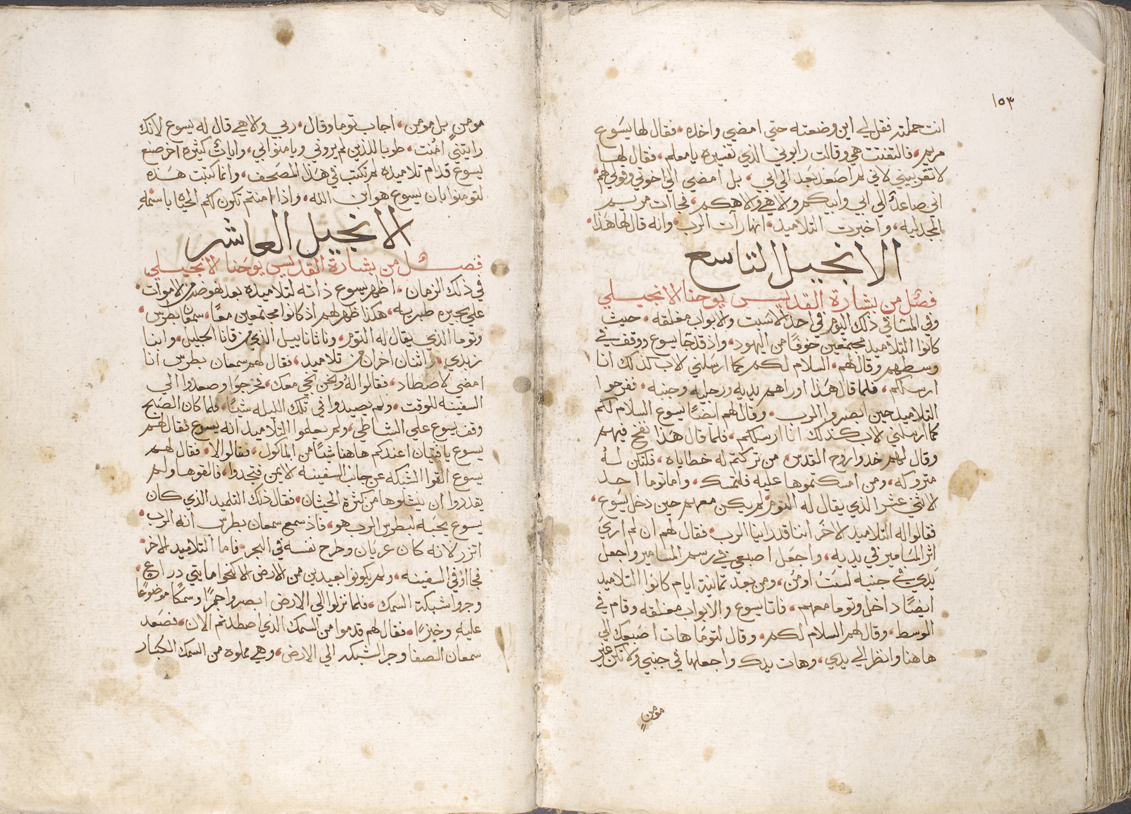 ١٥٣
انت حملته فقل لي اين وضعته حتى امضي واخذه، فقال لها يسوع
مريم، فالتفتت هي وقالت رابوني الذي تفسيره يا معلم، فقال لها
لا تقربيني لاني لم اصعد بعد الى ابي، بل امضي الى اخوتي وقولي لهم
اني صاعد الى ابي وابيكم ولاهي ولاهكم، فجات مريم
المجدليه، واخبرت التلاميذ، انها رات الرب، وانه قال لها هذا
الانجيل التاسع
فصل من بشارة القديس يوحنا الانجيلي
وفي المسا في ذلك اليوم في احد السبت والابواب مغلقه، حيث
كانوا التلاميذ مجتمعين خوفا من اليهود، واذ قد جا يسوع ووقف في
وسطهم وقال لهم، السلام لكم كما ارسلني الاب كذلك انا
ارسلكم، فلما قال هذا اراهم يديه ورجليه وجنبه، ففرحوا
التلاميذ حين ابصروا الرب، وقال لهم ايضا يسوع السلام لكم
كما ارسلني الاب كذلك انا ارسلكم، فلما قال هذا نفخ فيهم
وقال لهم خدوا روح القدس، من تركتم له خطاياه، فلتكن له
متروكه، ومن امسكتموها عليه فلتمسك، واما توما احد
الاثني عشر الذي يقال له التوم لم يكن معهم حين دخل يسوع،
فقالوا له التلاميذ الاخر، اننا قد راينا الرب، فقال لهم ان لم ارى
اثر المسامير في يديه، واجعل اصبعي في رسم المسامير واجعل
يدي في جنبه لست اومن، ومن بعد تمانية ايام كانوا التلاميذ
ايضا داخل وتوما معهم، فاتا يسوع والابواب مغلقه وقام في
الوسط، وقال لهم السلام لكم، وقال لتوما هات اصبعك الى
هاهنا وانظر الى يدي، وهات يدك واجعلها في جنبي ولا تكن غير
مومن
مومن بل مومن، اجاب توما وقال، ربي ولاهي قال له يسوع لانك
رايتني امنت، طوبا للذين لم يروني ويامنوا بي، وايات كثيره اخر صنع
يسوع قدام تلاميذه لم تكتب في هذا المصحف، وانما كتبت هذه
لتومنوا بان يسوع هو ابن الله، واذا امنتم تكون لكم الحياة باسمه
الانجيل العاشر
فصل من بشارة القديس يوحنا الانجيلي
في ذلك الزمان، اظهر يسوع ذاته لتلاميذه بعد نهوضه من الاموات
على بحيرة طبريه، هكذا ظهر لهم اذ كانوا مجتمعين معا، سمعان بطرس،
وتوما الذي يقال له التوم، وناثانابيل الذي من قانا الجليل، وابنا
زبدي، واثنان اخران من تلاميذه، فقال لهم سمعان بطرس انا
امضي لاصطاد، فقالوا له ونحن نجي معك، فخرجوا وصعدوا الى
السفينه للوقت، ولم يصيدوا في تلك الليله شيا، فلما كان الصبح
وقف يسوع على الشاطي، ولم يعلموا التلاميذ انه يسوع فقال لهم
يسوع يا فتيان اعندكم هاهنا شيا من الماكول، فقالوا لا، فقال لهم
يسوع القوا الشبكه عن جانب السفينه الايمن فتجدوا، فالقوها ولم
يقدروا ان يشيلوها من كثرة الحيتان، فقال ذلك التلميذ الذي كان
يسوع يحبه لبطرس الرب هو، فاذ سمع سمعان بطرس انه الرب
اتزر لانه كان عريان وطرح نفسه في البحر، فاما التلاميذ الاخر
فجاؤ في السفينه، ولم يكونوا بعيدين من الارض الا نحو مايتي دراع،
وجروا شبكة السمك، فلما نزلوا الى الارض ابصروا جمرا وسمكا موضوعا
عليه وخبزا، فقال لهم قدموا من السمك الذي اصطدتم الان، فصعد
سمعان الصفا وجر الشبكه الى الارض، وهي مملوه من السمك الكبار